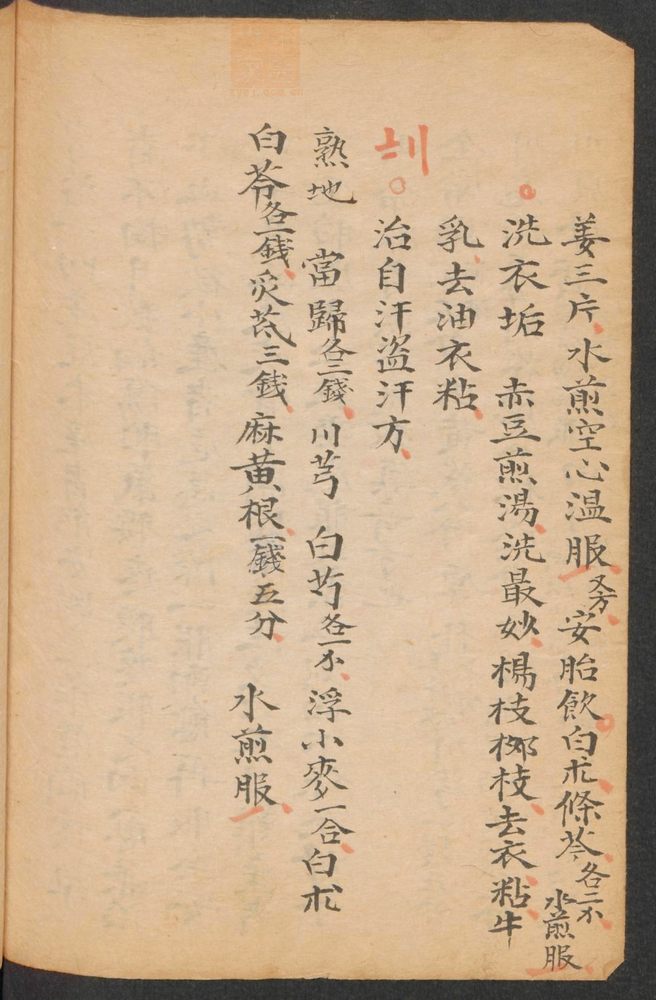 姜三片水煎空心温服又方安胎飲白朮條芩各二小水煎服
洗衣垢 赤豆煎湯洗最妙楊枝柳枝去衣粘牛
乳去油衣粘
治自汗盗汗方
熟地 當歸各三錢川芎 白芍各一小浮小麥一合白朮
白苓各一錢炙芪三錢麻黄根一錢五分 水煎服